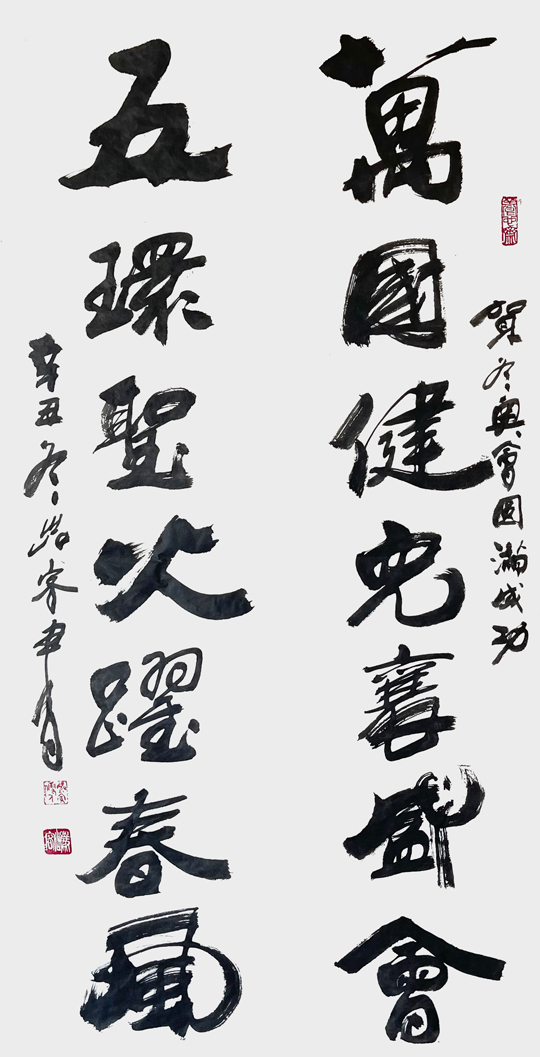 賀冬奧會圓滿成功
萬國健兒襄盛會
五環聖火躍春
辛丑冬